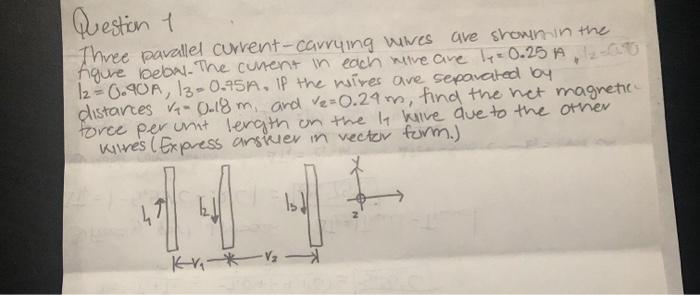 Question 1
Three parallel current-carrying wires are shown in the
figure below. The current in each wire are I₁=0.25 A,
I2=0.90A, I3=0.95A. IP the wires are separated by
distances r₁= 0.18 m, and r2=0.29m, find the net magnetic
force per unit length on the I1 wire due to the other
wires (Express answer in vector form.)
I₁ I2 I3
z
r₁ r2